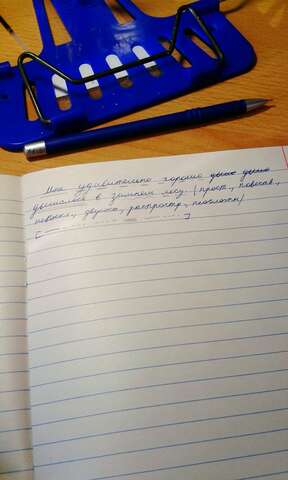 Мне удивительно хорошо дыша дышало
дышалось в зимнем лесу. (прост., повеств.,
невоскл., двусост., распростр., неосложн)
[— ═]